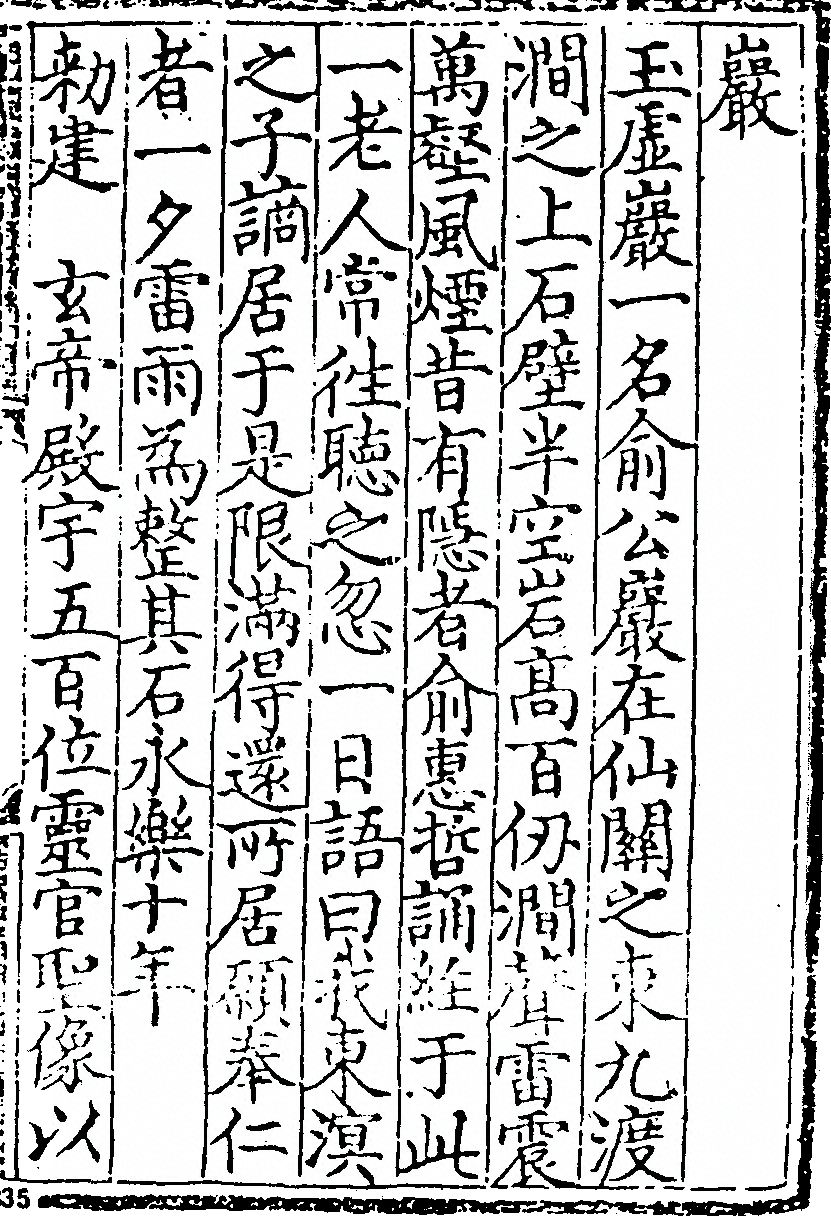 巖
玉虛巖一名俞公巖在仙關之東九渡
澗之上石壁半空岩高百仞澗聲雷震
萬壑風煙昔有隱者俞惠哲誦經于此
一老人常往聽之忽一日語曰我東溟
之子謫居于是限滿得還所居願奉仁
者一夕雷雨為整其石永樂十年
勑建　玄帝殿宇五百位靈官聖像以
35